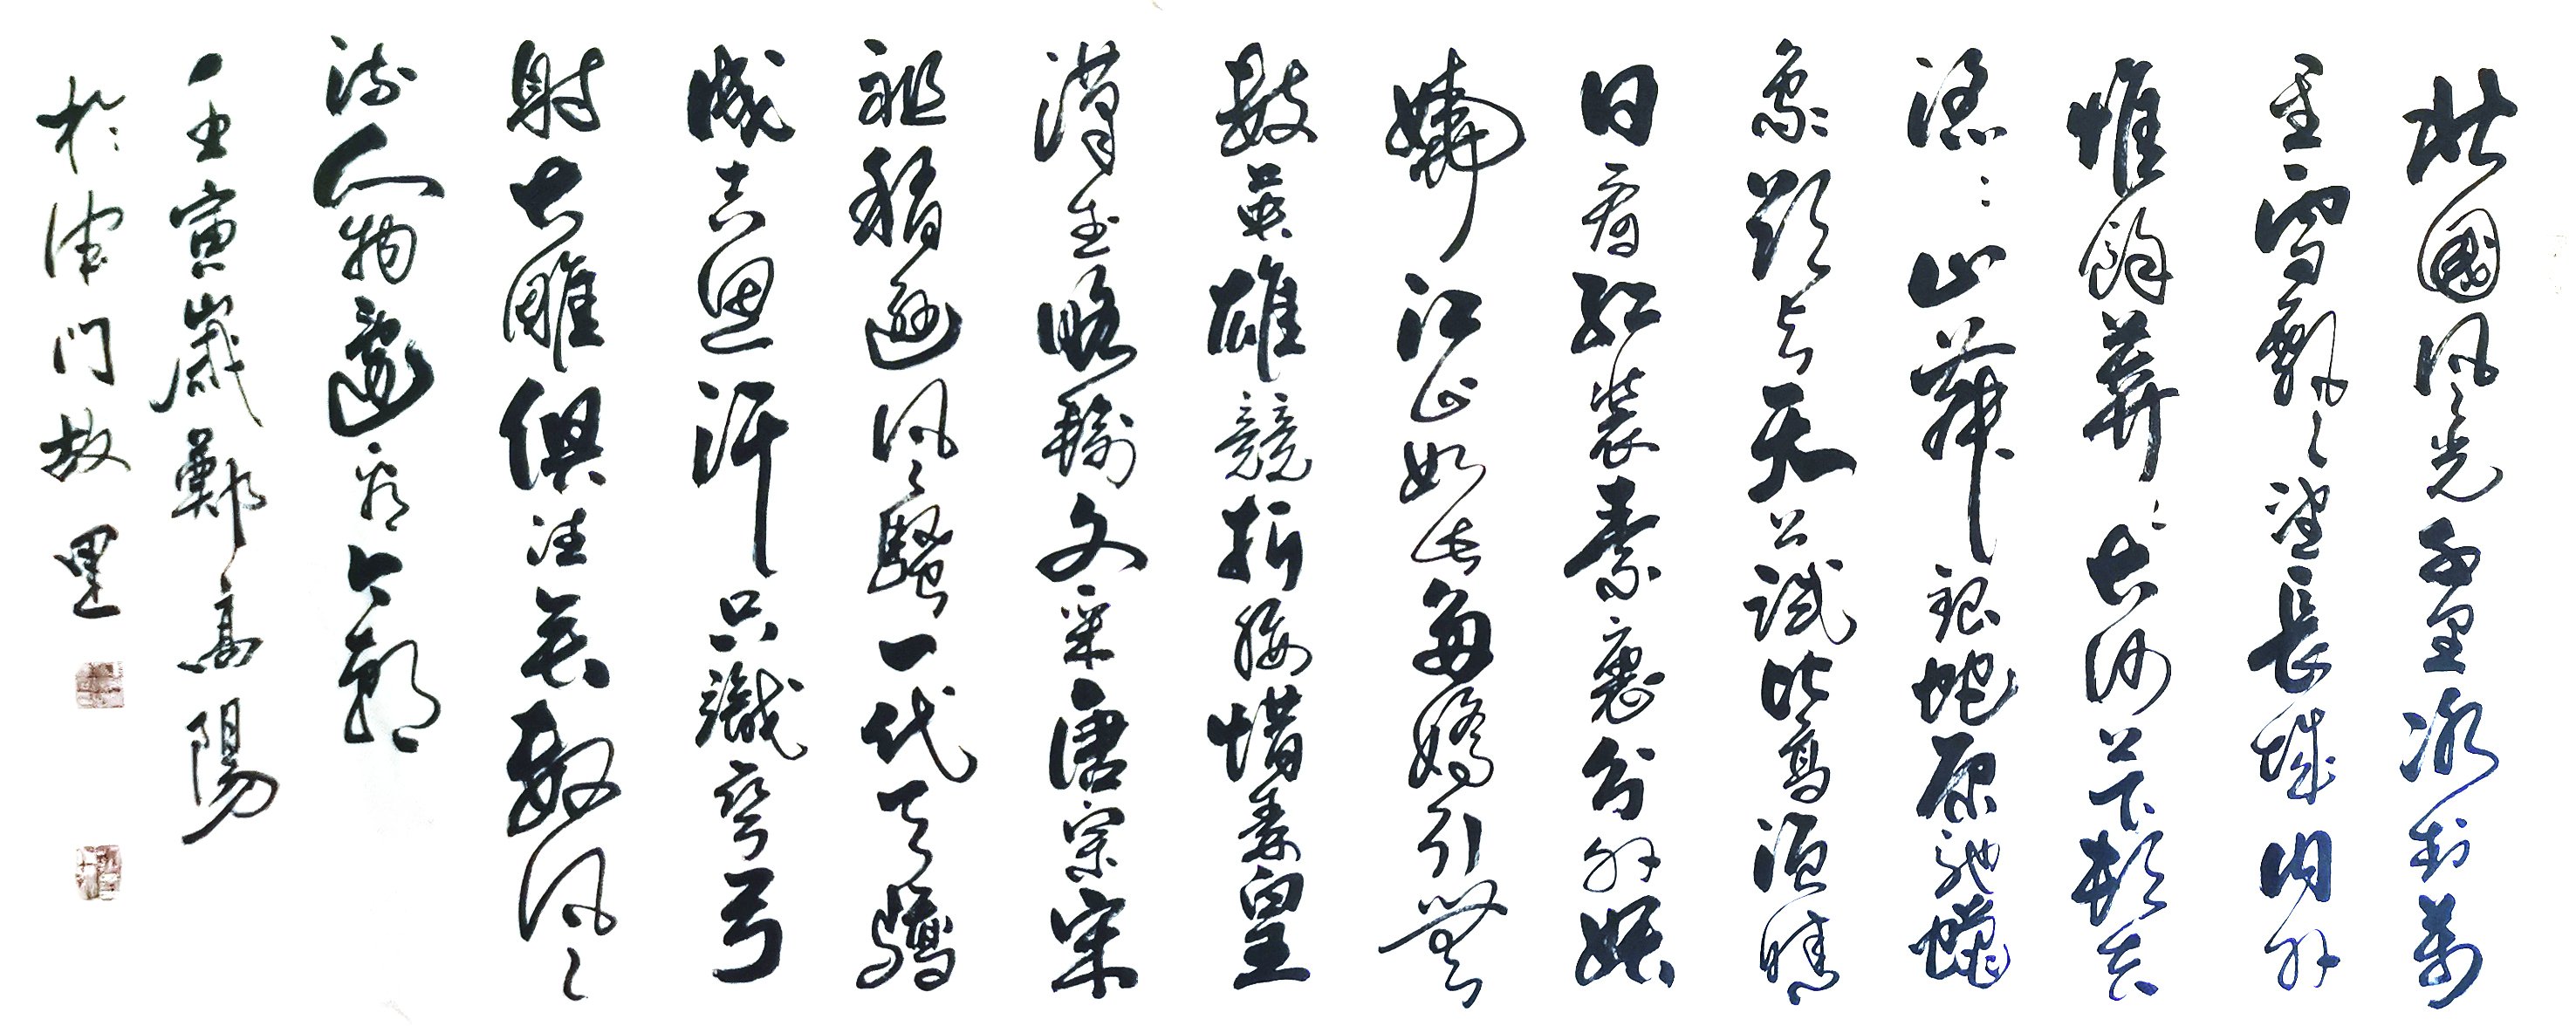 北國風光千里冰封萬
里雪飄望長城内外
惟餘莽莽大河上下頓失
滔滔山舞銀蛇原馳蠟
象欲與天公試比高須晴
日看紅裝素裹分外妖
嬈江山如此多嬌引無
數英雄競折腰惜秦皇
漢武略輸文采唐宗宋
祖稍遜風騷一代天驕
成吉思汗只識彎弓
射大雕俱往矣數風
流人物還看今朝
壬寅歲鄭高陽
於津門故里